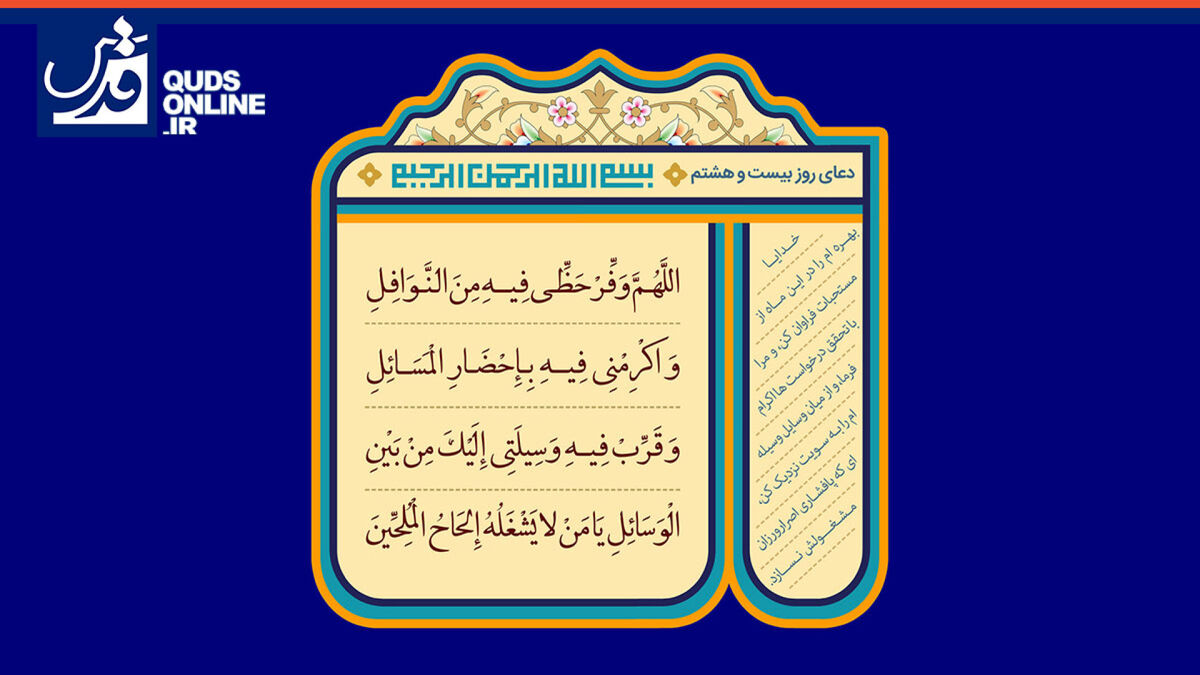 قدس
QUDS
ONLINE
.IR
دعای روز بیست و هشتم
بسم الله الرحمن الرحیم
اللَّهُمَّ وَفِّرْ حَظِّی فِیهِ مِنَ النَّوَافِلِ
وَ اَکْرِمْنِی فِیهِ بِإِحْضَارِ الْمَسَائِلِ
وَ قَرِّبْ فِیهِ وَسِیلَتِی إِلَیْکَ مِنْ بَیْنِ
الْوَسَائِلِ یَا مَنْ لا یَشْغَلُهُ إِلْحَاحُ الْمُلِحِّینَ
خدایا
بهره ام را در این ماه از
مستحبات فراوان کن، و مرا
با تحقق درخواست ها اکرام
فرما، و از میان وسایل وسیله
ام را به سویت نزدیک کن،
ای که پافشاری اصرارورزان
مشغولش نسازد.